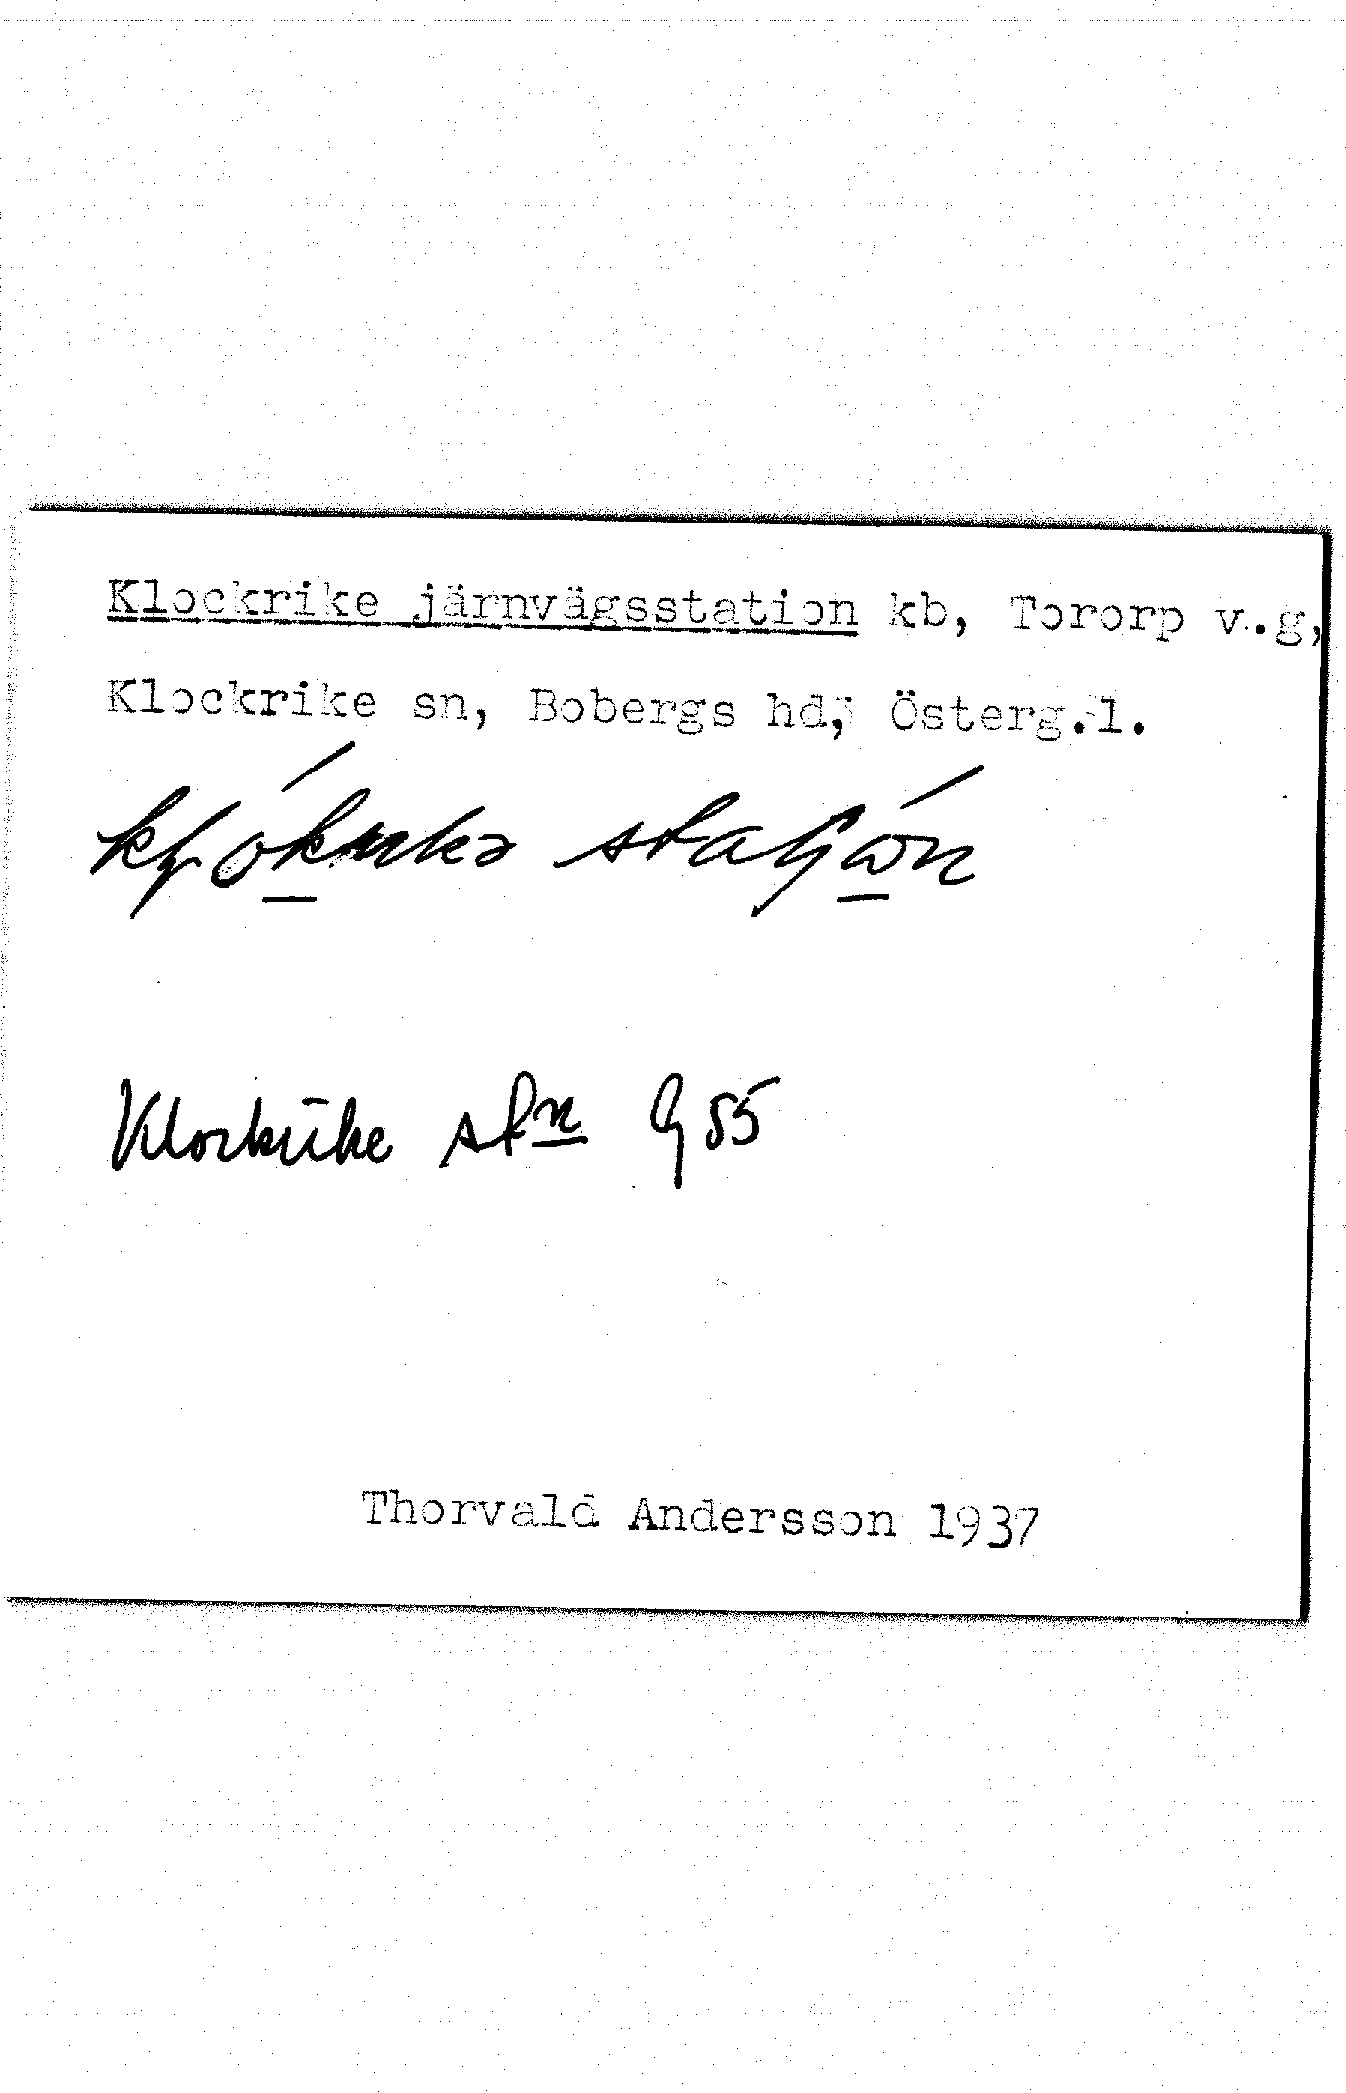 Klockrike järnvägsstation kb, Tororp v.g,
Klockrike sn, Bobergs hd, Österg.l.
Klockrike stn G 55
Thorvald Andersson 1937